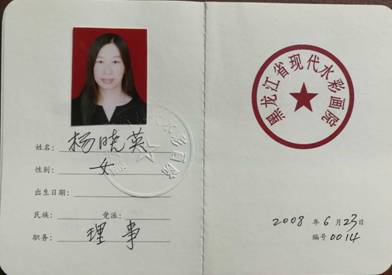 姓名：杨晓英
性别：女
出生日期：
民族：党派：
职务：理事
黑龙江省现代水彩画院
2008年6月23日
编号0014